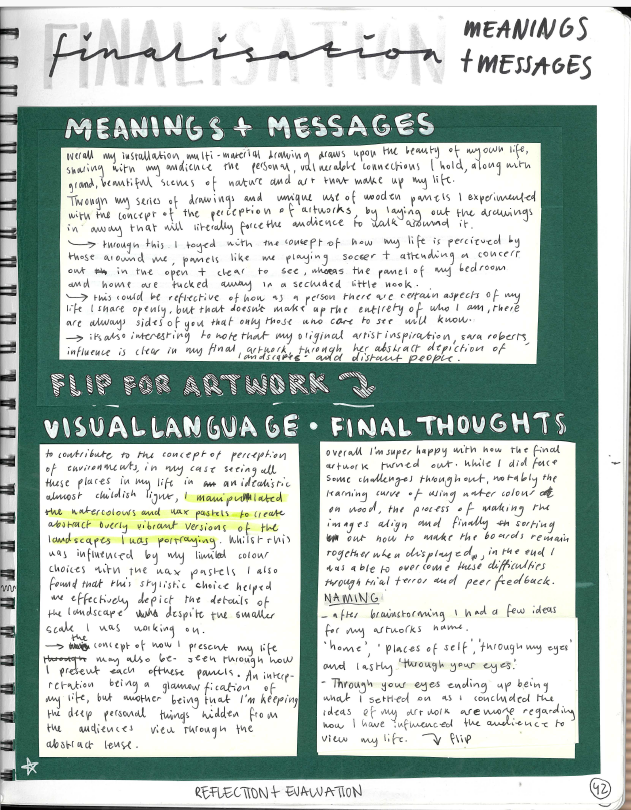 FINALISATION
finalisation
MEANINGS
+ MESSAGES
MEANINGS + MESSAGES
overall my installation multi-material drawing draws upon the beauty of my own life,
sharing with my audience the personal, vulnerable connections I hold, along with
grand, beautiful scenes of nature and art that make up my life.
Through my series of drawings and unique use of wooden panels I experimented
with the concept of the perception of artworks, by laying out the drawings
in away that will literally force the audience to walk around it.
→ through this I toyed with the concept of how my life is percieved by
those around me, panels like me playing soccer + attending a concert
out in the open + clear to see, whereas the panel of my bedroom
and home are tucked away in a secluded little nook.
→ this could be reflective of how as a person there are certain aspects of my
life I share openly, but that doesn't make up the entirety of who I am, there
are always sides of you that only those who care to see will know.
→ its also interesting to note that my original artist inspiration, sara roberts,
influence is clear in my final artwork, through her abstract depiction of
landscapes and distant people.
FLIP FOR ARTWORK
VISUAL LANGUAGE • FINAL THOUGHTS
to contribute to the concept of perception
of environments, in my case seeing all
these places in my life in an idealistic
almost childish light, I manipulated
the watercolours and wax pastels to create
abstract overly vibrant versions of the
landscapes I was portraying. Whilst this
was influenced by my limited colour
choices with the wax pastels I also
found that this stylistic choice helped
me effectively depict the details of
the landscape despite the smaller
scale I was working on.
→ the concept of how I present my life
may also be seen through how
I present each of these panels. An interp-
retation being a glamourfication of
my life, but another being that I'm keeping
the deep personal things hidden from
the audiences view through the
abstract lense.
overall I'm super happy with how the final
artwork turned out. While I did face
some challenges throughout, notably the
learning curve of using water colour
on wood, the process of making the
images align and finally sorting
out how to make the boards remain
together when displayed, in the end I
was able to overcome these difficulties
through trial + error and peer feedback.
NAMING
- after brainstorming I had a few ideas
for my artworks name.
'home', 'places of self', 'through my eyes'
and lastly 'through your eyes'.
- Through your eyes ending up being
what I settled on as I concluded the
ideas of my artwork are more regarding
how I have influenced the audience to
view my life. flip
REFLECTION + EVALUATION
42